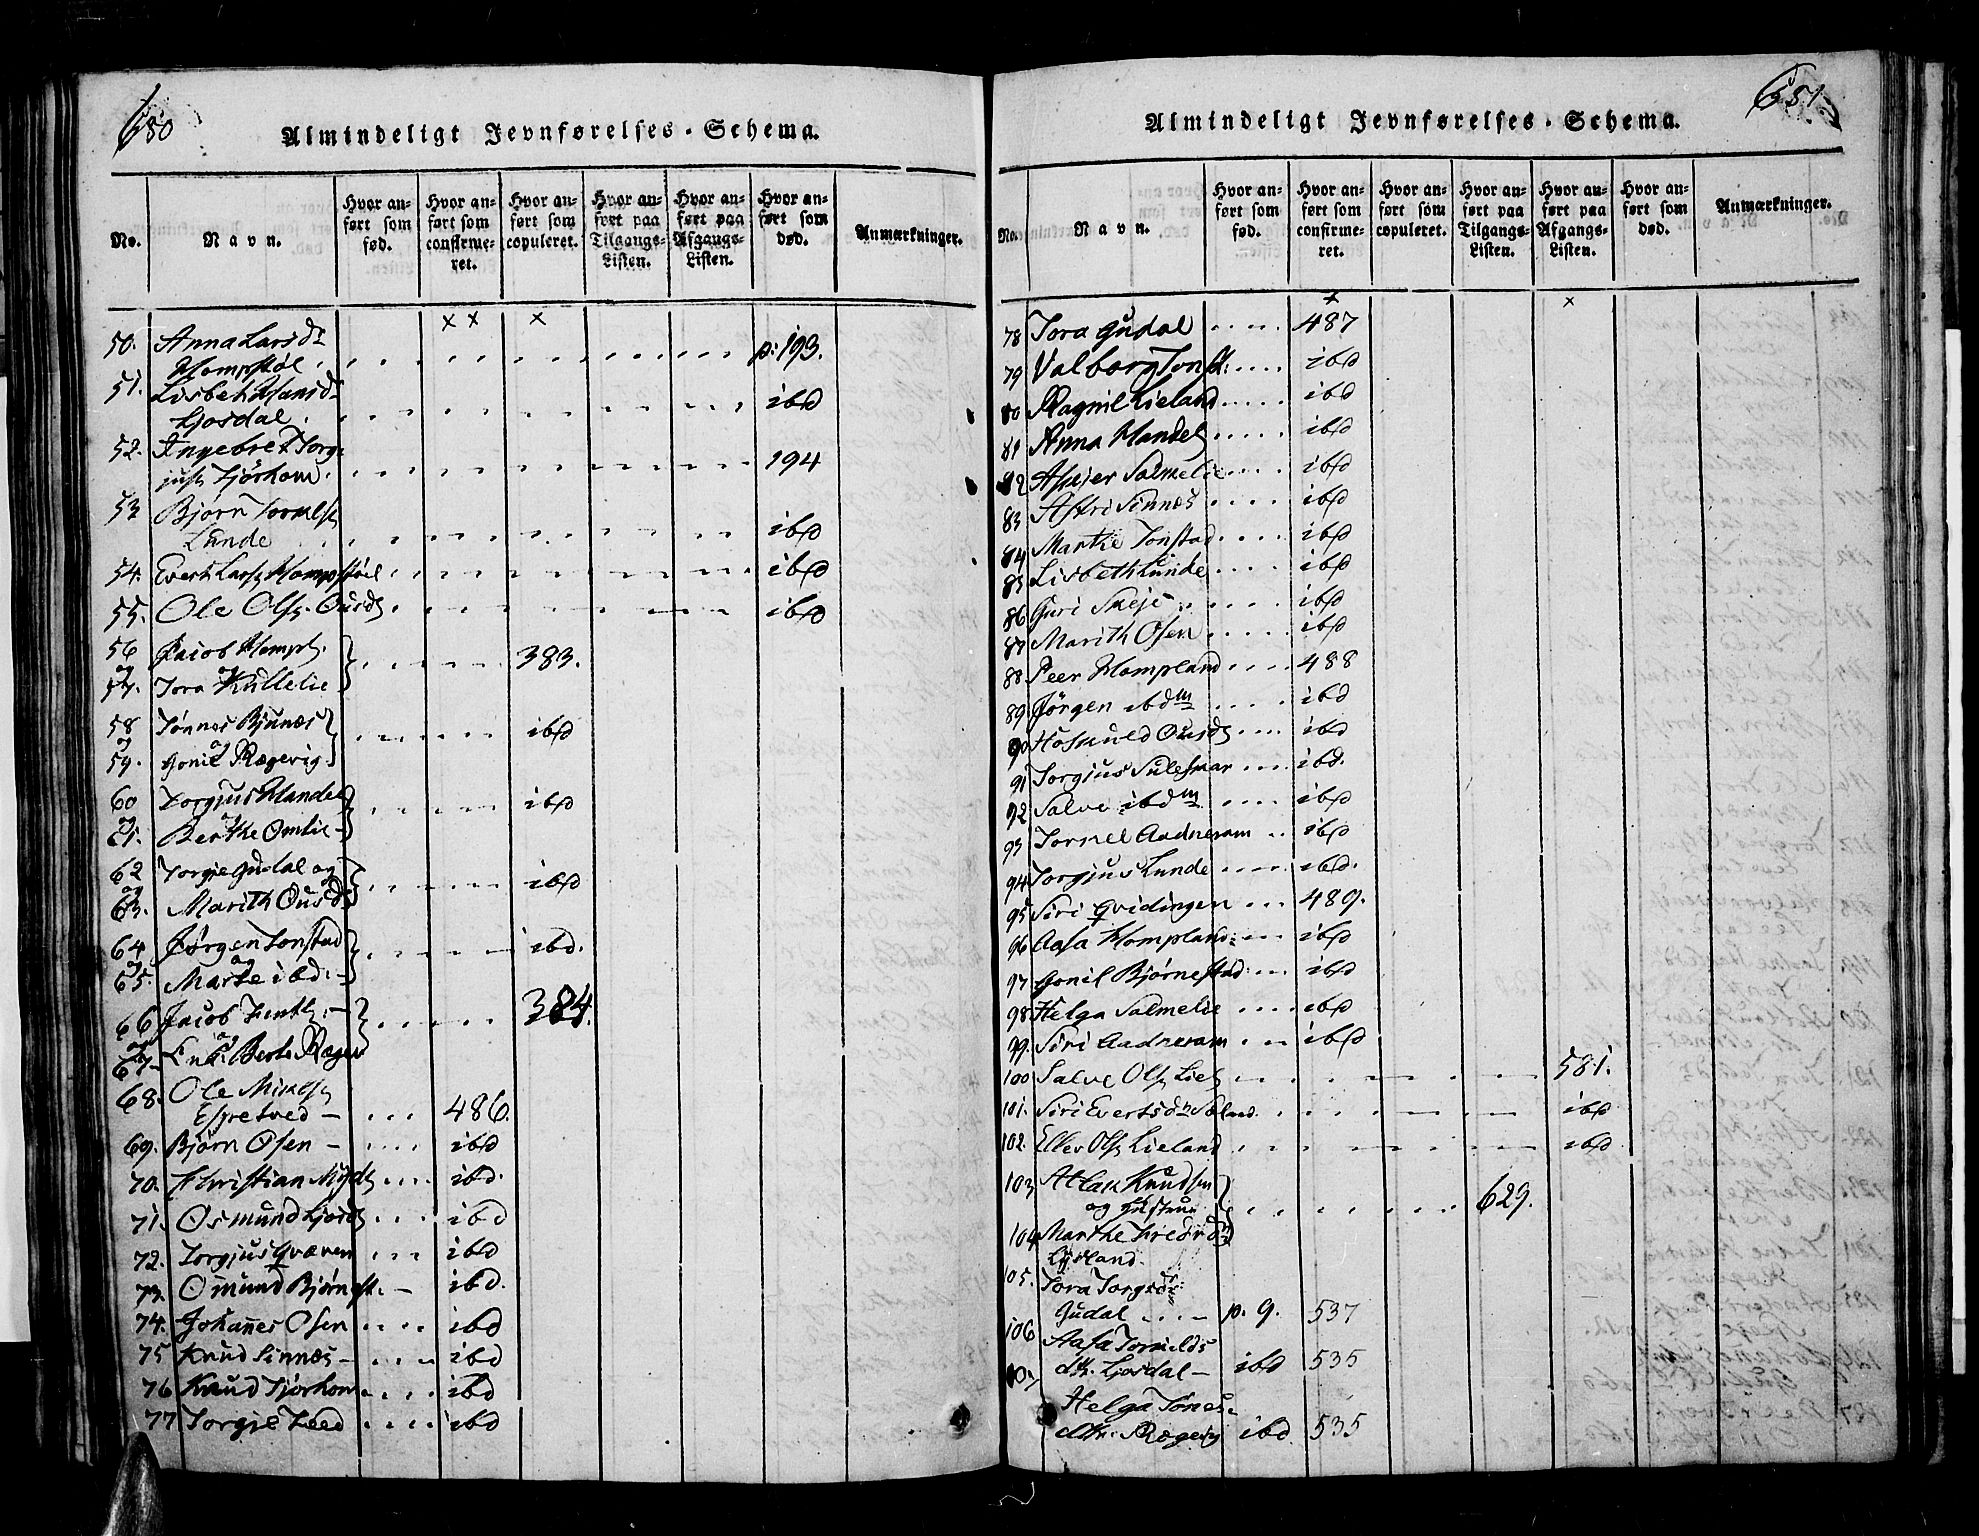 650
Almindeligt Jevnførelses-Schema.
No.
Navn.
Hvor anført som fød.
Hvor anført som confirmeret.
Hvor anført som copuleret.
Hvor anført paa Tilgangs-Listen.
Hvor anført paa Afgangs-Listen.
Hvor anført som død.
Anmærkninger.
x x x
50. Anna Larsdr
Hompstøl p: 193.
51. Lisbet Hansd
Ljosdal ibd
52. Ingebret Torg
jusn Tjörhom. 194
53 Björn Tormelsn
Lunde ibd
54. Evert Larsn Hompstøel ibd
55. Ole Olsn Ousd ibd
56 Jacob Hompl. 383.
og og
57. Tora Kullelie
58 Tönnes Bjunæs ibd
og og
59. Gonil Rægevig
60 Torgius Handel ibd
og og
61. Berthe Omlie
62 Torgie Gudal og ibd
og
63. Marith Ousd
64 Jörgen Tonstad ibd.
og og
65. Marte ibd:
66 Jacob 384.
og
67 Enk: Berte Ræger
68. Ole Mikelsn
Espetved 486.
69. Björn Osen ibd
70. Christian ibd.
71. Osmund Ljosd ibd
72. Torgius Qvæven ibd
73. Omund Björnest. ibd.
74. Johannes Osen ibd
75 Knud Sinnes ibd
76 Knud Tjörhom ibd
77 Torgie Leed ibd
651
Almindeligt Jevnførelses-Schema.
No.
Navn.
Hvor anført som fød.
Hvor anført som confirmeret.
Hvor anført som copuleret.
Hvor anført paa Tilgangs-Listen.
Hvor anført paa Afgangs-Listen.
Hvor anført som død.
Anmærkninger.
x x
78 Tora Gudal 487
79 Valborg Tonst: ibd
80 Ragnil Lieland ibd
81 Anna Handel ibd
82 Asgier Salmelie ibd
83 Astri Sinnes ibd
84 Marthe Tonstad ibd
85 Lisbeth Lunde ibd
86 Guri Skeje ibd
87 Marith Osen ibd
88 Peer Hompland 488
89 Jörgen ibdm ibd
90 Hoskuld Ousd ibd
91 Torgius Suleskar ibd.
92 Salve ibdm ibd
93 Tormel Aadneram ibd
94 Torgius Lunde ibd.
95 Siri Qvidingen 489.
96 Aasa Hompland: ibd
97 Gonil Björnestad ibd
98 Helga Salmelie ibd
99. Siri Aadneram ibd
100 Salve Olsn Liel 581.
101. Siri Evertsdr ibd
102. Ellev Olsn Lieland ibd
103 Atlak Knudsen
og Hustrue 629.
104 Marthe
Lysland.
105. Tora Torgisdr:
Gudal p. 9. 537
106 Aasa Tormelds
dtr. Ljosdal ibd 535
107
Helga Tönes
dtr. Rægevig ibd 535